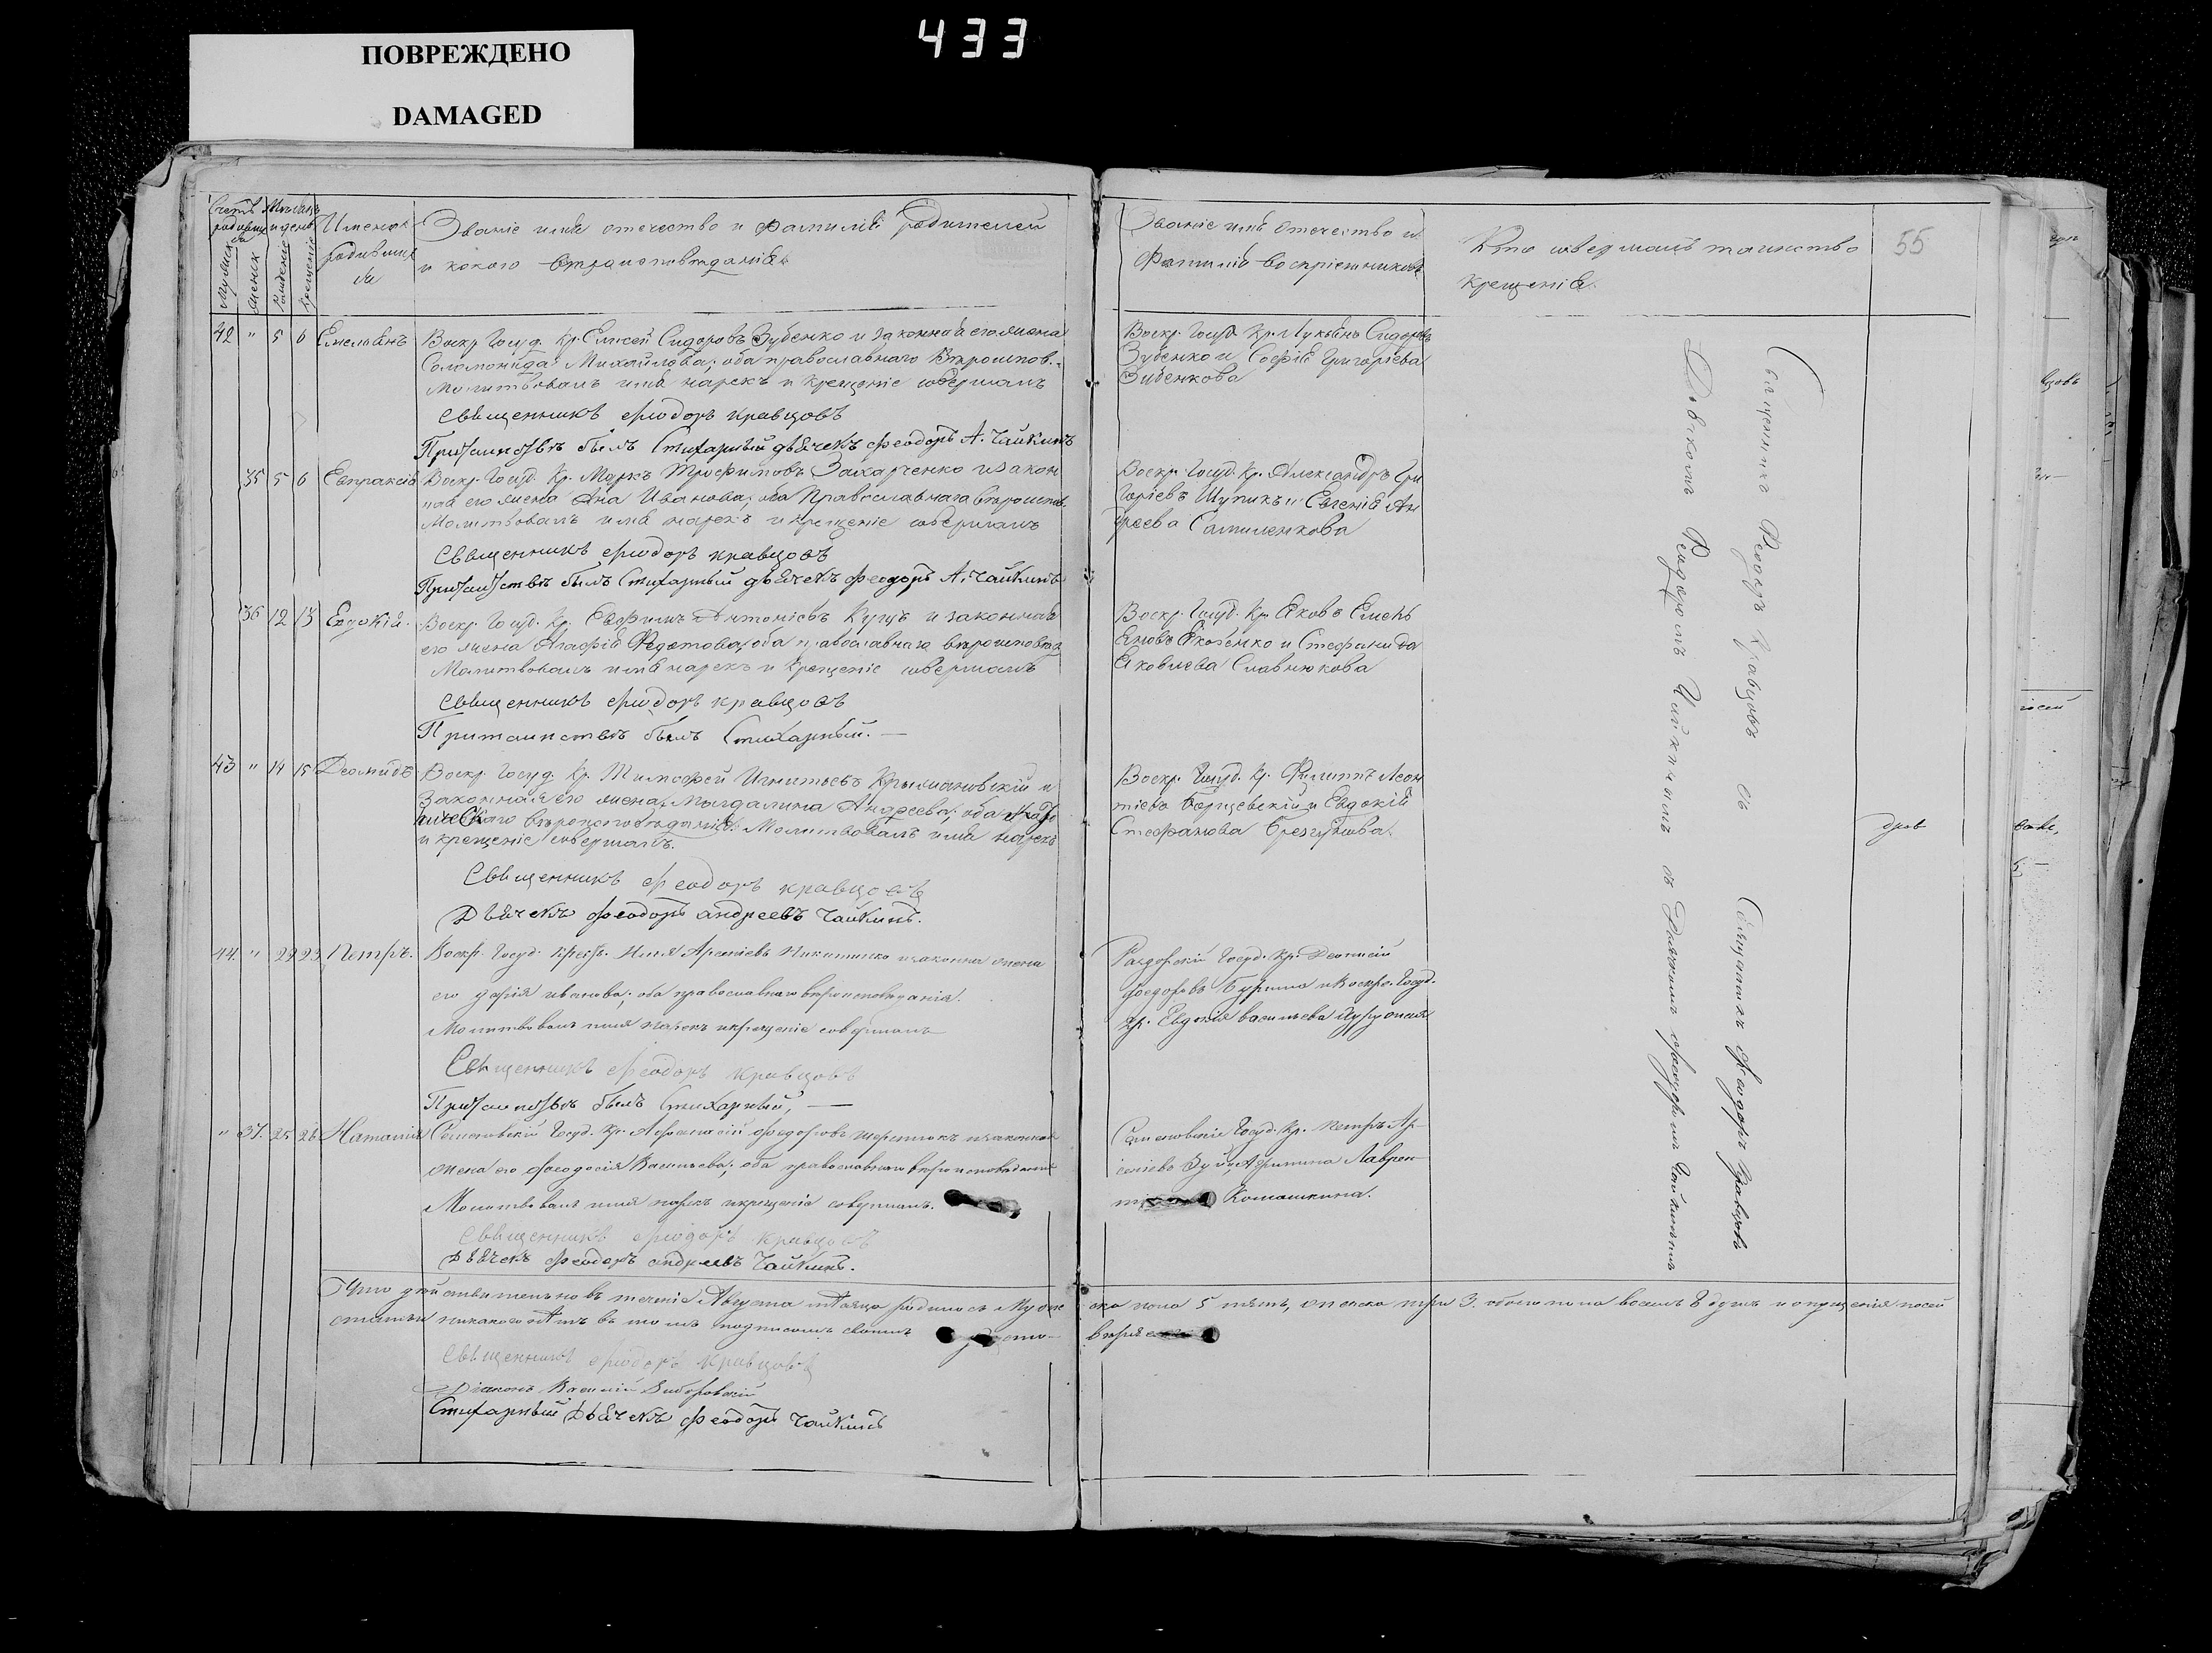 433
ПОВРЕЖДЕНО
DAMAGED
55
Счетъ родивших
ся
Мужеск
женск
Месяцъ
и день
Рожденіе
Крещеніе
Имена
родивших
ся
Званіе имя отечество и фамиліи родителей
и какого вѣроисповѣданія
Званіе имя отечество и
фамилія воспріемниковъ
Кто совершалъ таинство
крещенія.
42 " 5 6 Емеліянъ
Воскр. Госуд. Кр. Елисей Сидоровъ Зубенко и законная его жена
Соломонида Михайлова; оба православнаго вѣроиспов.
Молитвовалъ имя нарекъ и крещеніе совершалъ
Священникъ Феодоръ Кравцовъ
При таинствѣ былъ Стихарный дьячекъ Феодоръ А. Чайкинъ
Воскр. Госуд. Кр. Лукьянъ Сидоровъ
Зубенко и Софія Григоріева
Зубенкова
35 5 6 Евпраксія
Воскр. Госуд. Кр. Марко Трофимовъ Захарченко и закон
ная его жена Анна Иванова; оба Православнаго вѣроиспов.
Молитвовалъ имя нарекъ и крещеніе совершалъ
Священникъ Феодоръ Кравцовъ
При таинствѣ былъ Стихарный дьячекъ Феодоръ А. Чайкинъ
Воскр. Госуд. Кр. Александръ Гри
горіевъ Шупикъ и Евгенія Ан
дреева Самиленкова
36 12 13 Евдокія.
Воскр. Госуд. Кр. Евфимъ Антоніевъ Куцъ и законная
его жена Агафія Федотова; оба православнаго вѣроисповѣд
Молитвовалъ имя нарекъ и крещеніе совершалъ
Священникъ Феодоръ Кравцовъ
При таинствѣ былъ Стихарный. —
Воскр. Госуд. Кр. Яковъ Емель
яновъ Якобенко и Стефанида
Яковлева Славнюкова
43 " 14 15 Деомидъ
Воскр. Госуд. Кр. Тимофей Игнатьевъ Крыжановскій и
Законная его жена Магдалина Андреева; оба
вѣроисповѣданія. Молитвовалъ имя нарекъ
и крещеніе совершалъ.
Священникъ Феодоръ Кравцовъ
Дьячекъ Феодоръ Андреевъ Чайкинъ.
Воскр. Госуд. Кр. Филиппъ Леон
тіевъ Борщевскій и Евдокія
Стефанова
44. " 22 23 Петръ.
Воскр. Госуд. Крест. Илія Арсеніевъ Никитенко и законна жена
его Дарія Иванова; оба православнаго вѣроисповѣданія.
Молитвовалъ имя нарекъ и крещеніе совершалъ
Священникъ Феодоръ Кравцовъ
При таинствѣ былъ Стихарный, —
Раздорскій Госуд. Кр. Деонисій
Феодоровъ и Воскре. Госуд.
Кр. Евдокія Васильева
" 37. 25 26 Наталія
Семеновскій Госуд. Кр. Афанасій Феодоровъ и законная
жена его Феодосія Васильева; оба православнаго вѣроисповѣданія
Молитвовалъ имя нарекъ и крещеніе совершалъ.
Священникъ Феодоръ Кравцовъ
Дьячекъ Феодоръ Андреевъ Чайкинъ.
Семеновскіе Госуд. Кр. Петръ Ар
сеніевъ Лаврен
Комашкина.
Священникъ Феодоръ Кравцовъ съ
Дьячкомъ Феодоромъ Чайкинымъ
Священникъ Феодоръ Кравцовъ
съ Дьячкомъ Феодоромъ Чайкинымъ
Что дѣйствительно въ теченіе Августа мѣсяца родилось Муже ска пола 5 пять, женска три 3. обоего пола восемь 8 душъ и опущенія по сей
статьи никакого нѣтъ въ томъ подписомъ своимъ
Священникъ Феодоръ Кравцовъ
Діаконъ Василій
Стихарный Дьячекъ Феодоръ Чайкинъ